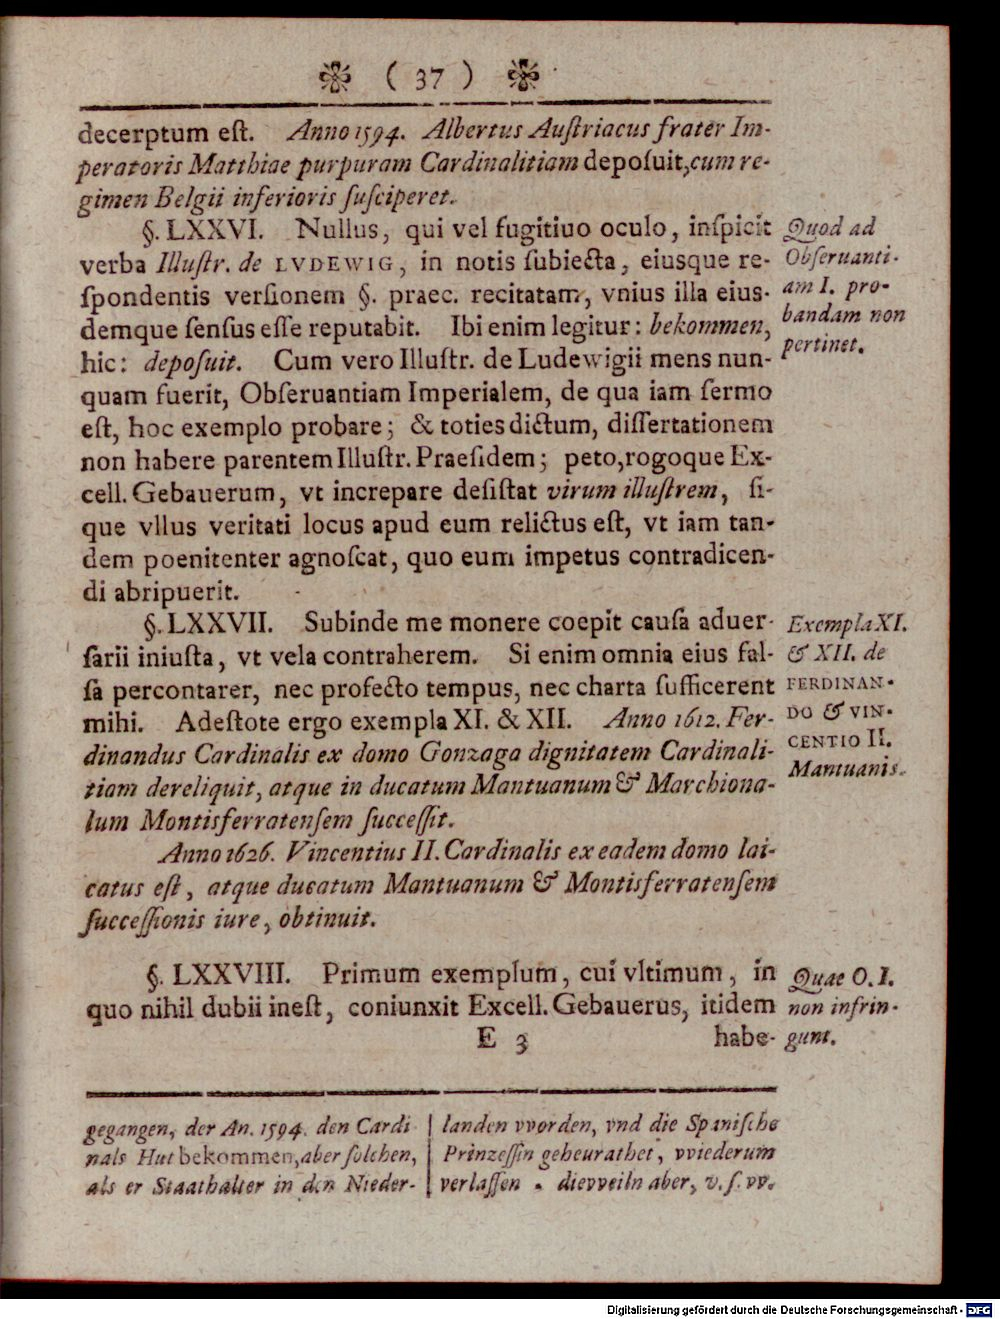 ( 37 )
decerptum eſt. Anno 1594. Albertus Auſtriacus frater Im-
peratoris Matthiae purpuram Cardinalitiam depoſuit, cum re-
gimen Belgii inferioris ſuſciperet.
§. LXXVI. Nullus, qui vel fugitiuo oculo, inſpicit
verba Illuſtr. de LVDEWIG, in notis ſubiecta, eiusque re-
ſpondentis verſionem §. praec. recitatam, vnius illa eius-
demque ſenſus eſſe reputabit. Ibi enim legitur: bekommen,
hic: depoſuit. Cum vero Illuſtr. de Ludewigii mens nun-
quam fuerit, Obſeruantiam Imperialem, de qua iam ſermo
eſt, hoc exemplo probare; & toties dictum, diſſertationem
non habere parentem Illuſtr. Praeſidem; peto, rogoque Ex-
cell. Gebauerum, vt increpare deſiſtat virum illuſtrem, ſi-
que vllus veritati locus apud eum relictus eſt, vt iam tan-
dem poenitenter agnoſcat, quo eum impetus contradicen-
di abripuerit.
Quod ad
Obſeruanti-
am I. pro-
bandam non
pertinet.
§. LXXVII. Subinde me monere coepit cauſa aduer-
ſarii iniuſta, vt vela contraherem. Si enim omnia eius fal-
ſa percontarer, nec profecto tempus, nec charta ſufficerent
mihi. Adeſtote ergo exempla XI. & XII. Anno 1612. Fer-
dinandus Cardinalis ex domo Gonzaga dignitatem Cardinali-
tiam dereliquit, atque in ducatum Mantuanum & Marchiona-
lum Montisferratenſem ſucceſſit.
Anno 1626. Vincentius II. Cardinalis ex eadem domo lai-
catus eſt, atque ducatum Mantuanum & Montisferratenſem
ſucceſſionis iure, obtinuit.
Exempla XI.
& XII. de
FERDINAN-
DO & VIN-
CENTIO II.
Mantuanis.
§. LXXVIII. Primum exemplum, cui vltimum, in
quo nihil dubii ineſt, coniunxit Excell. Gebauerus, itidem
E 3 habe-
Quae O. I.
non infrin-
gunt.
gegangen, der An. 1594. den Cardi
nals Hut bekommen, aber ſolchen,
als er Staathalter in den Nieder-
landen vvorden, vnd die Spaniſche
Prinzeſſin geheurathet, vviederum
verlaſſen. dievveiln aber, v. ſ. vv.
Digitalisierung gefördert durch die Deutsche Forschungsgemeinschaft - DFG